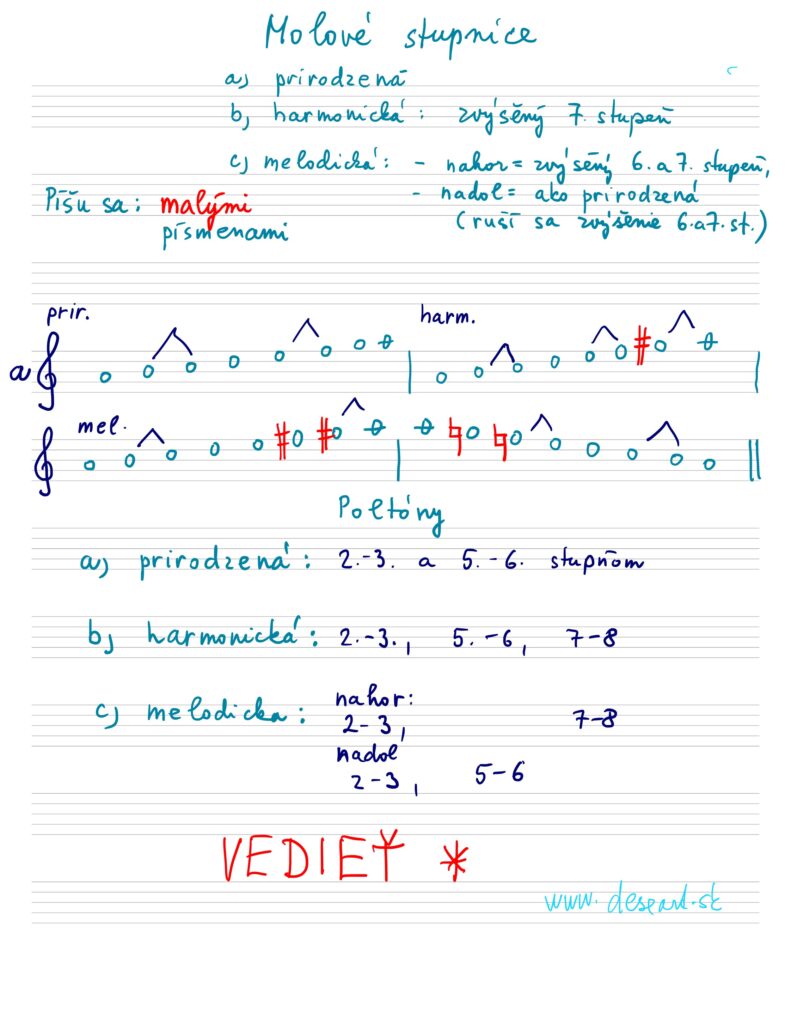 Molové stupnice
a) prirodzená
b) harmonická: zvýšený 7. stupeň
c) melodická: - nahor = zvýšený 6. a 7. stupeň,
Píšu sa: malými
- nadol = ako prirodzená
písmenami
(ruší sa zvýšenie 6. a 7. st.)
prir.
harm.
a
mel.
Poltóny
a) prirodzená: 2.-3. a 5.-6. stupňom
b) harmonická: 2.-3., 5.-6, 7-8
c) melodicka: nahor:
2-3, 7-8
nadol
2-3, 5-6
VEDIEŤ *